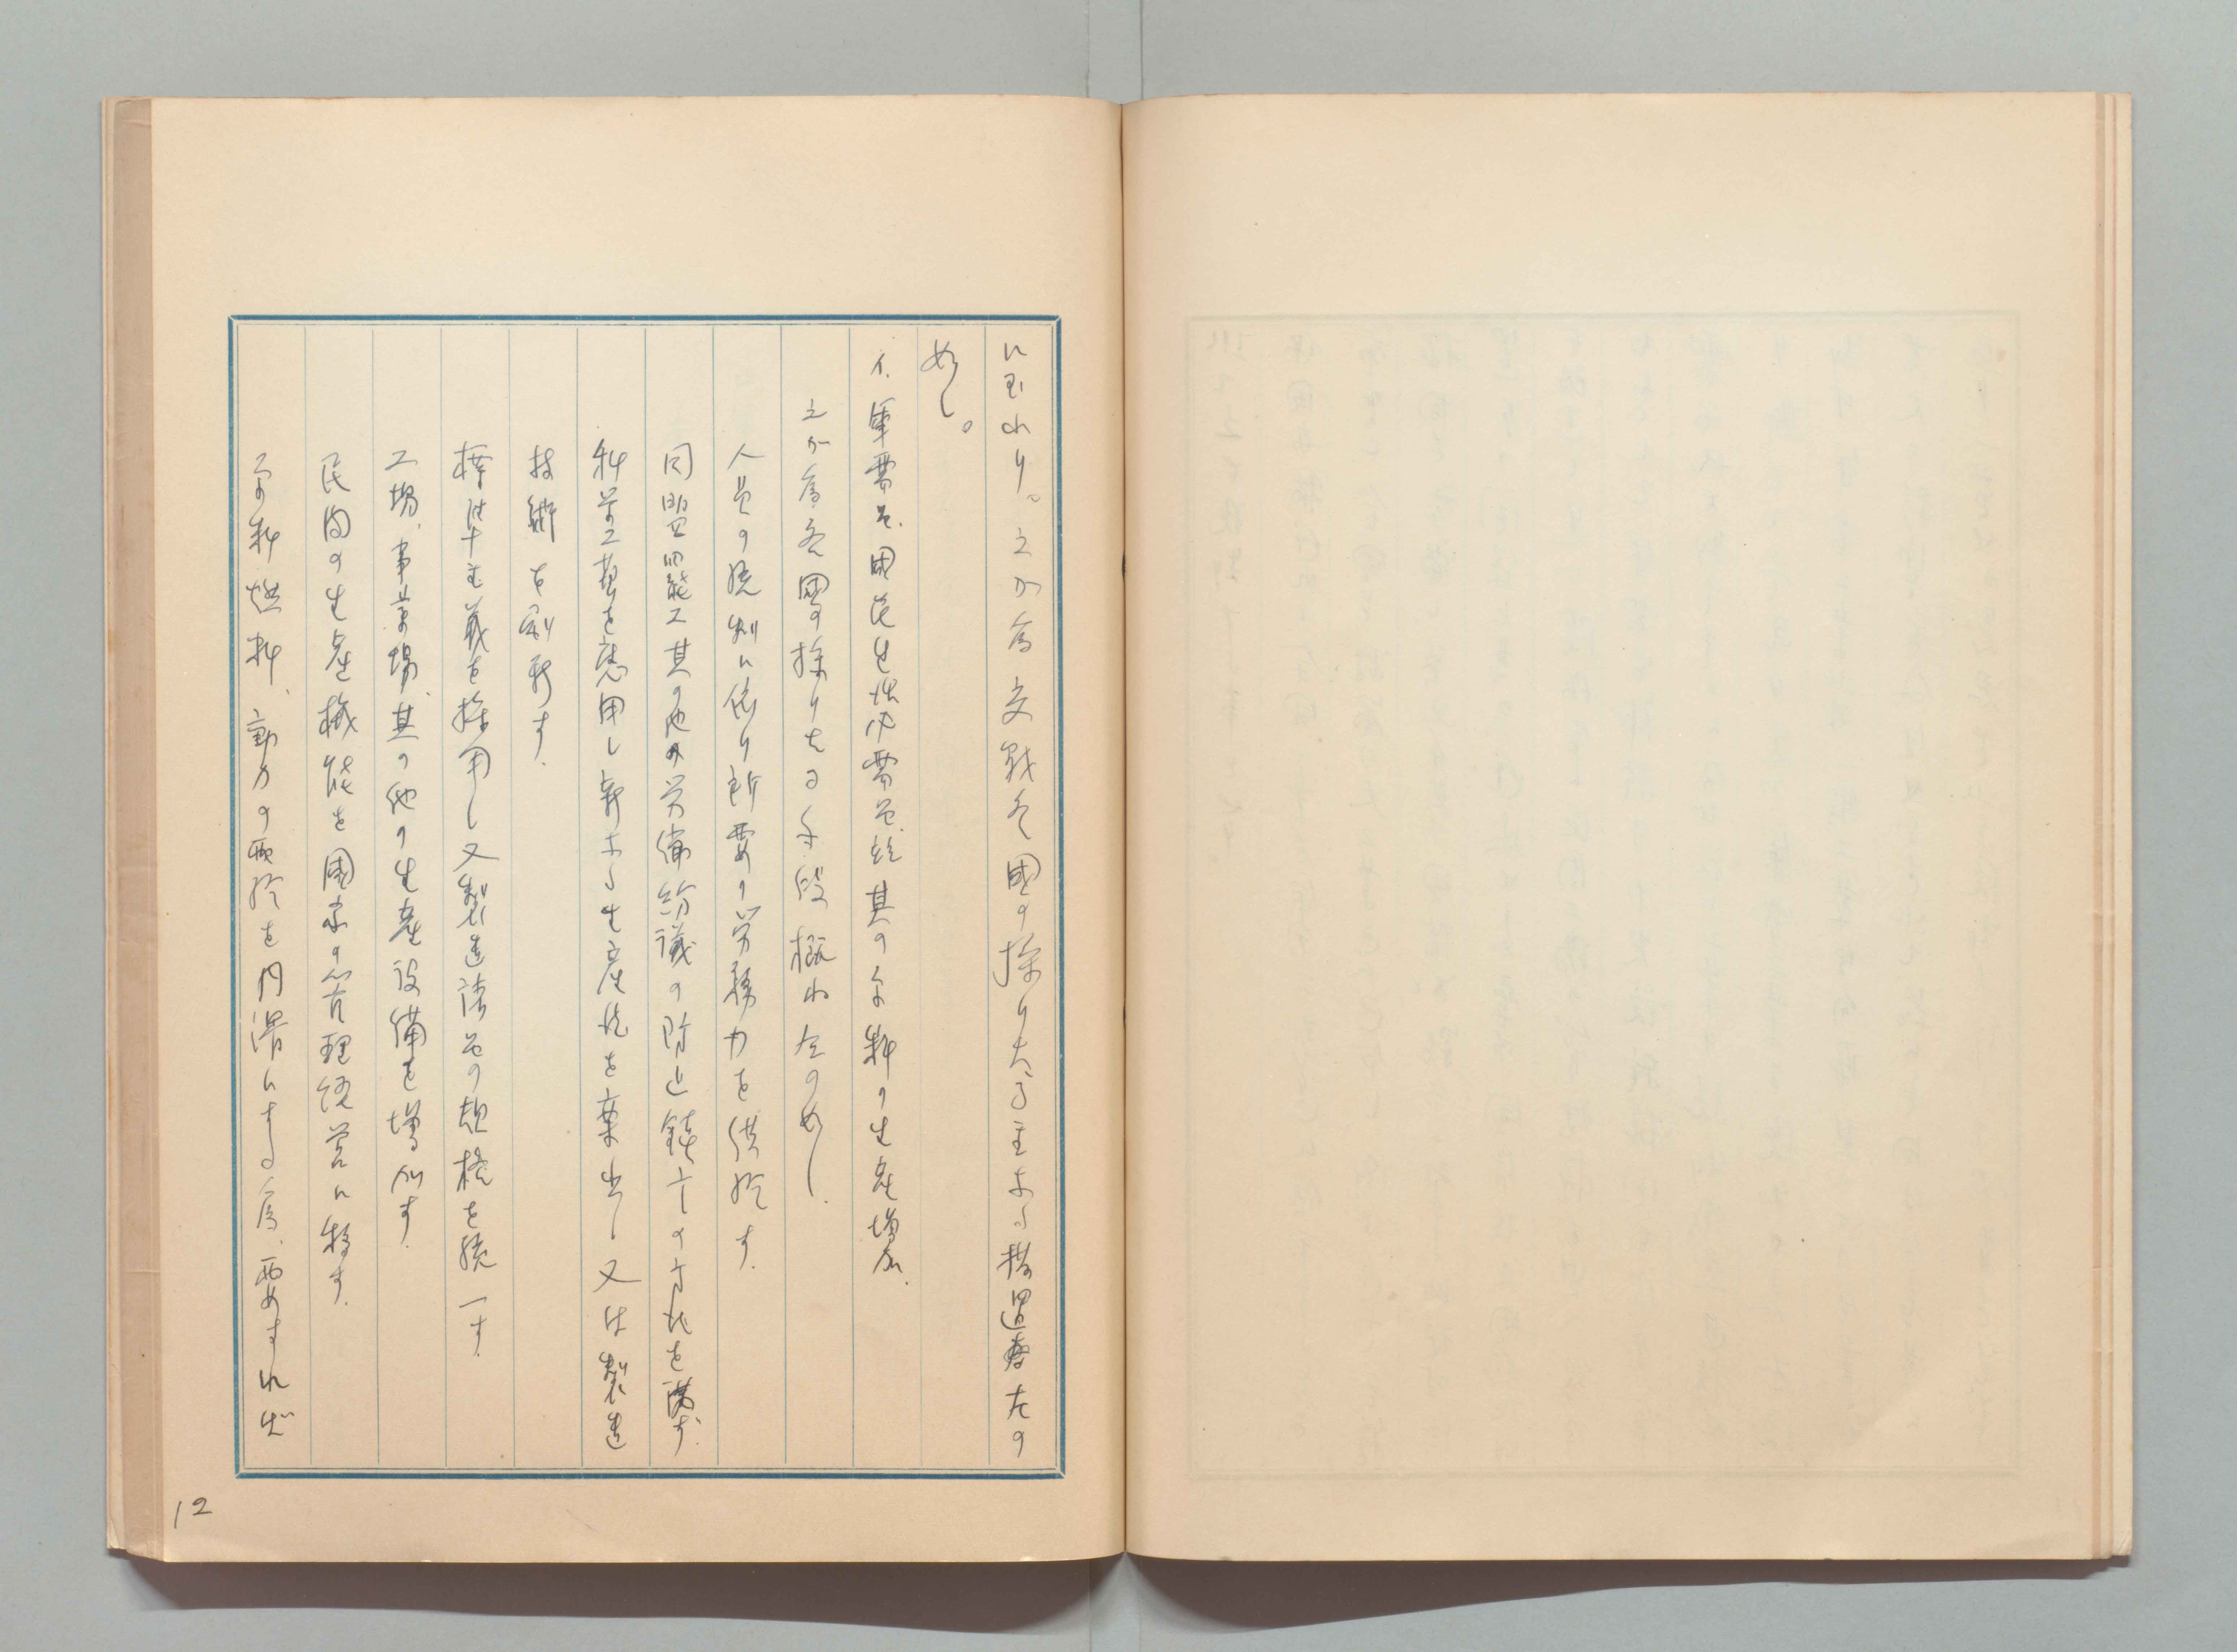 に至れり。之が為交戦各國の採りたる主なる措置左の
如し。
イ、軍需品、國民生活必需品竝其の原料の生産増加、
之が為各國の採りたる手段概ね左の如し、
人員の統制に依り所要の労務力を供給す、
同盟罷工其の他の労働紛議の防止の方法を講ず、
科学工藝を應用し新なる生産法を案出し又は製造
技術を刷新す、
標準主義を採用し又製造品の規格を統一す、
工場、事業場、其の他の生産設備を増加す、
民間の生産機能を國家の管理経営に移す、
原料燃料、動力の配給を円滑にする為、要すれば
12